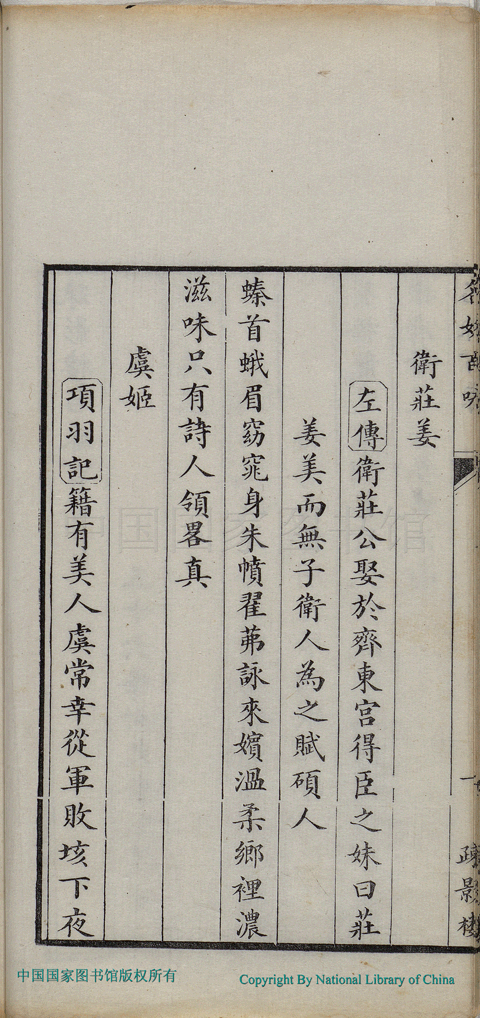 衛莊姜
左傳衛莊公娶於齊東宮得臣之妹曰莊
姜美而無子衛人為之賦碩人
螓首蛾眉窈窕身朱幩翟茀詠來嬪溫柔鄉裡濃
滋味只有詩人領畧真
虞姬
項羽記籍有美人虞常幸從軍敗垓下夜
疏影樓
中国国家图书馆版权所有
Copyright By National Library of China